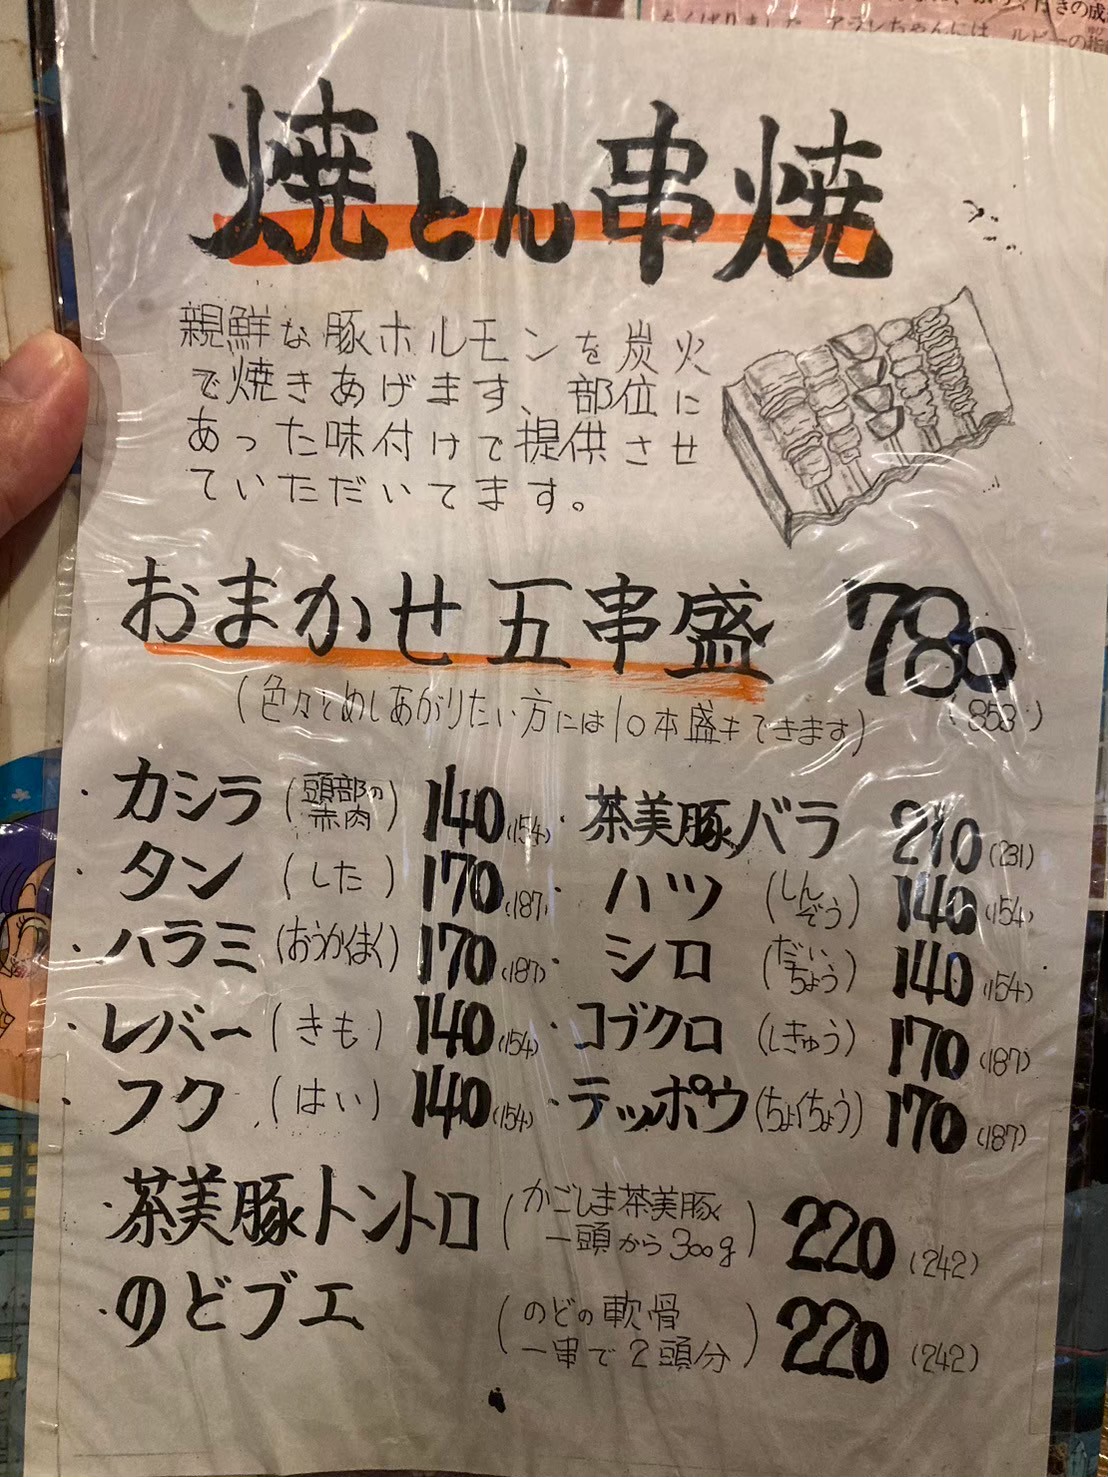 をくばりました。アラレちゃんには、ルビーの指
焼とん串焼
親鮮な豚ホルモンを炭火
で焼きあげます、部位に
あった味付けで提供させ
ていただいてます。
おまかせ五串盛 780
(853)
(色々とめしあがりたい方には10本盛もできます)
・カシラ(頭部の赤肉) 140(154)
・タン(した) 170(187)
・ハラミ(おうかくまく) 170(187)
・レバー(きも) 140(154)
・フク(はい) 140(154)
・茶美豚バラ 210(231)
・ハツ(しんぞう) 140(154)
・シロ(だいちょう) 140(154)
・コブクロ(しきゅう) 170(187)
・テッポウ(ちょくちょう) 170(187)
・茶美豚トントロ(かごしま茶美豚
一頭から300g) 220(242)
・のどブエ(のどの軟骨
一串で2頭分) 220(242)